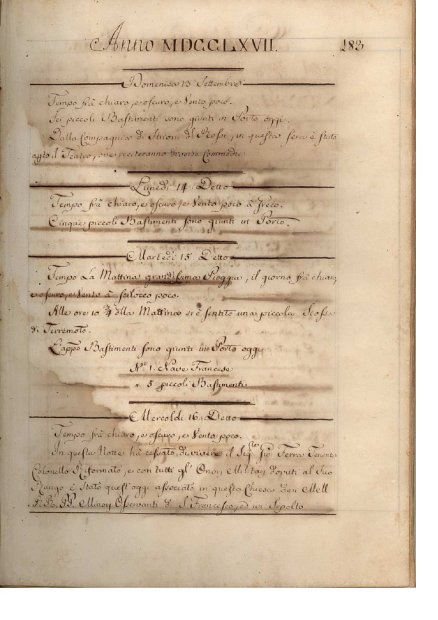 Anno MDCCLXVII. 183
Domenica 13 Settembre
Tempo frà chiaro, e oscuro, e Vento poco.
Sei piccoli Bastimenti sono giunti in Porto oggi.
Dalla Compagnia di Istrioni del in questa sera è stato
apto il Teatro, ove Commedie
Lunedì 14 Detto
Tempo frà chiaro, e oscuro, e Vento poco a Greco.
Cinque piccoli Bastimenti sono giunti in Porto.
Martedì 15 Detto
Tempo La Mattina Pioggia, il giorno frà chiaro,
e oscuro, e Vento a Scilocco poco.
Alle ore 10 3/4 della Mattina si è sentito una piccola Scossa
di Terremoto.
L'appo Bastimenti sono giunti in Porto oggi
N.º 1. Nave Francese
" 5 piccoli Bastimenti
Mercoldì 16 Detto
Tempo frà chiaro, e oscuro, e Vento poco.
In questa Notte hà cessato di vivere il Sig. Terra Tenente
Colonello Riformato, e con tutti gl' Onori Militari dovuti al Suo
Rango è stato quest' oggi associato in questa Chiesa
PP. Minori Osservanti di S. Francesco, ed ivi Sepolto